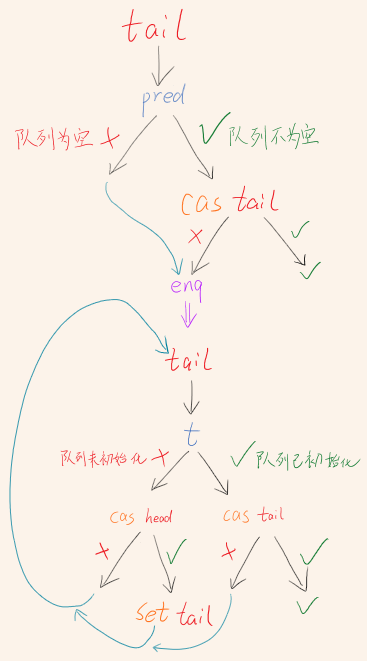 tail
pred
队列为空 ✗ ✓ 队列不为空
cas tail
✗ ✓
✓
enq
tail
t
队列未初始化 ✗ ✓ 队列已初始化
cas head cas tail
✗ ✓ ✗ ✓
set tail ✓